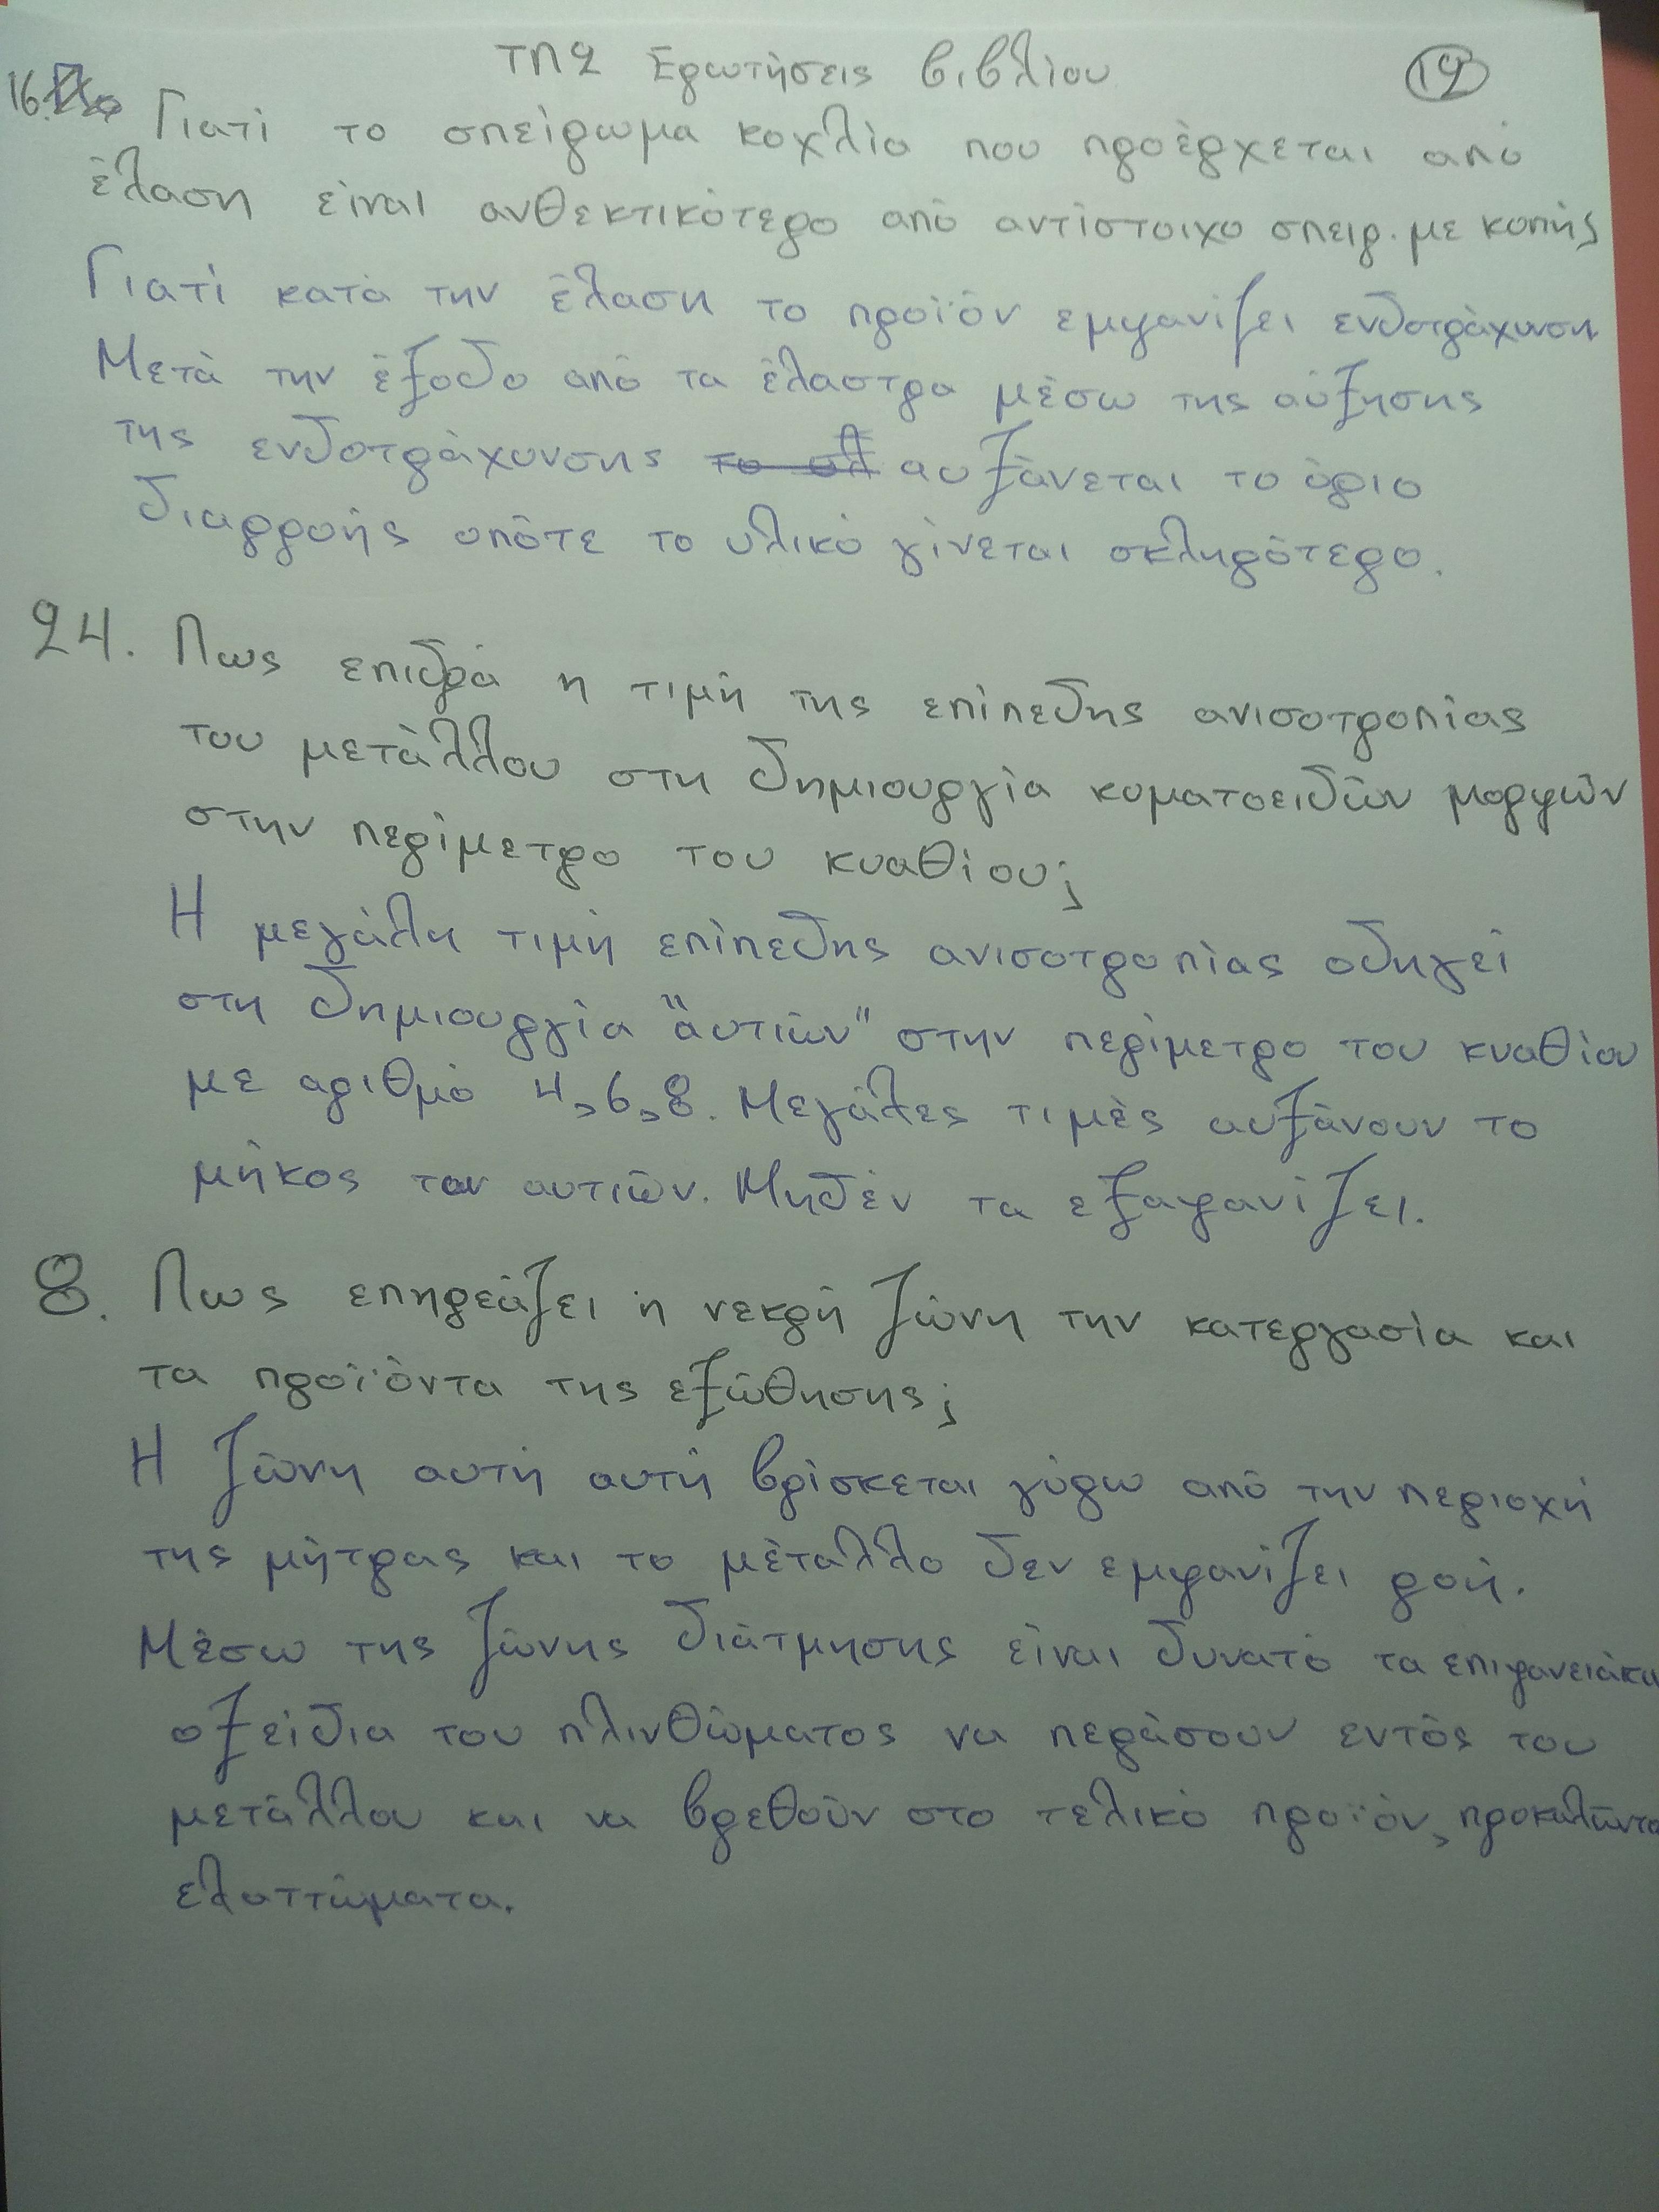 ΤΠ2 Ερωτήσεις βιβλίου 12
16. Γιατί το σπείρωμα κοχλία που προέρχεται από
έλαση είναι ανθεκτικότερο από αντίστοιχο σπειρ. με κοπής
Γιατί κατά την έλαση το προϊόν εμφανίζει ενδοτράχυνση
Μετά την έξοδο από τα έλαστρα μέσω της αύξησης
της ενδοτράχυνσης αυξάνεται το όριο
διαρροής οπότε το υλικό γίνεται σκληρότερο.
24. Πως επιδρά η τιμή της επίπεδης ανισοτροπίας
του μετάλλου στη δημιουργία κυματοειδών μορφών
στην περίμετρο του κυαθίου;
Η μεγάλη τιμή επίπεδης ανισοτροπίας οδηγεί
στη δημιουργία "αυτιών" στην περίμετρο του κυαθίου
με αριθμό 4,6,8. Μεγάλες τιμές αυξάνουν το
μήκος των αυτιών. Μηδέν τα εξαφανίζει.
8. Πως επηρεάζει η νεκρή ζώνη την κατεργασία και
τα προϊόντα της εξώθησης;
Η ζώνη αυτή αυτή βρίσκεται γύρω από την περιοχή
της μήτρας και το μέταλλο δεν εμφανίζει ροή.
Μέσω της ζώνης διάτμησης είναι δυνατό τα επιφανειακά
οξείδια του πλινθώματος να περάσουν εντός του
μετάλλου και να βρεθούν στο τελικό προϊόν, προκαλώντα
ελαττώματα.